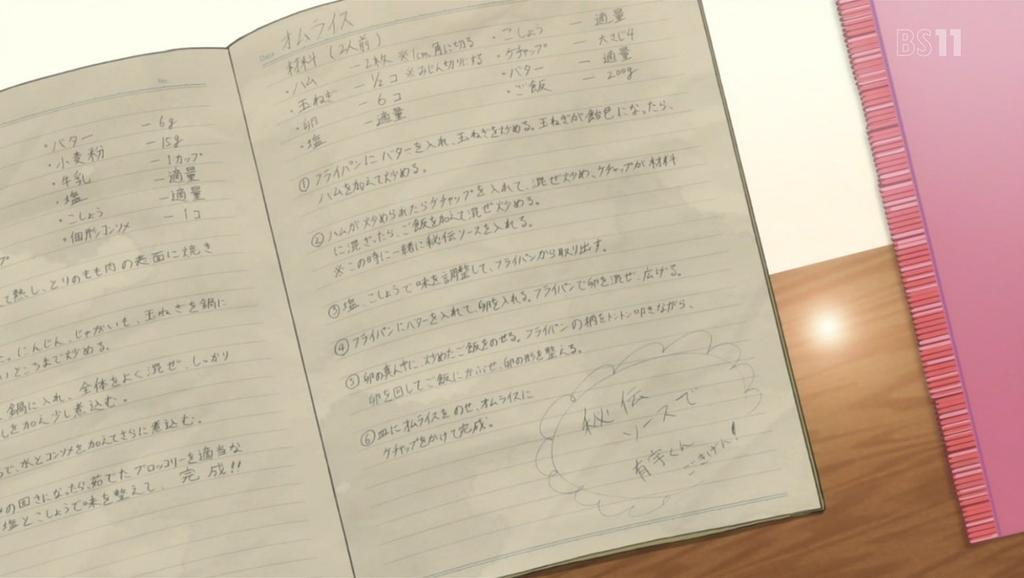 ・バター ― 6g
・小麦粉 ― 15g
・牛乳 ― 1カップ
・塩 ― 適量
・こしょう ― 適量
・個形コンソメ ― 1コ
て熱し、とりのもも肉の表面に焼き
にんじん、じゃがいも、玉ねぎを鍋に
ところまで炒める。
鍋に入れ、全体をよく混ぜ、しっかり
を加え少し煮込む。
で、水とコンソメを加えてさらに煮込む。
の固さになったら、茹でたブロッコリーを適当な
塩とこしょうで味を整えて、完成!!
オムライス
材料(2人前)
・ハム ― 2枚 ※1cm角に切る
・玉ねぎ ― 1/2コ ※みじん切りにする
・卵 ― 6コ
・塩 ― 適量
・こしょう ― 適量
・ケチャップ ― 大さじ4
・バター ― 適量
・ご飯 ― 200g
①フライパンにバターを入れ、玉ねぎを炒める。玉ねぎが飴色になったら、
ハムを加えて炒める。
②ハムが炒められたらケチャップを入れて、混ぜ炒め、ケチャップが材料
に混ざったら、ご飯を加えて混ぜ炒める。
※この時に一緒に秘伝ソースを入れる。
③塩、こしょうで味を調整して、フライパンから取り出す。
④フライパンにバターを入れて、卵を入れる。フライパンで卵を混ぜ、広げる。
⑤卵の真ん中に、炒めたご飯をのせる。フライパンの柄をトントン叩きながら、
卵を回してご飯にかぶせ、卵の形を整える。
⑥皿にオムライスをのせ、オムライスに
ケチャップをかけて完成。
秘伝
ソースで
ごきげん!
BS11